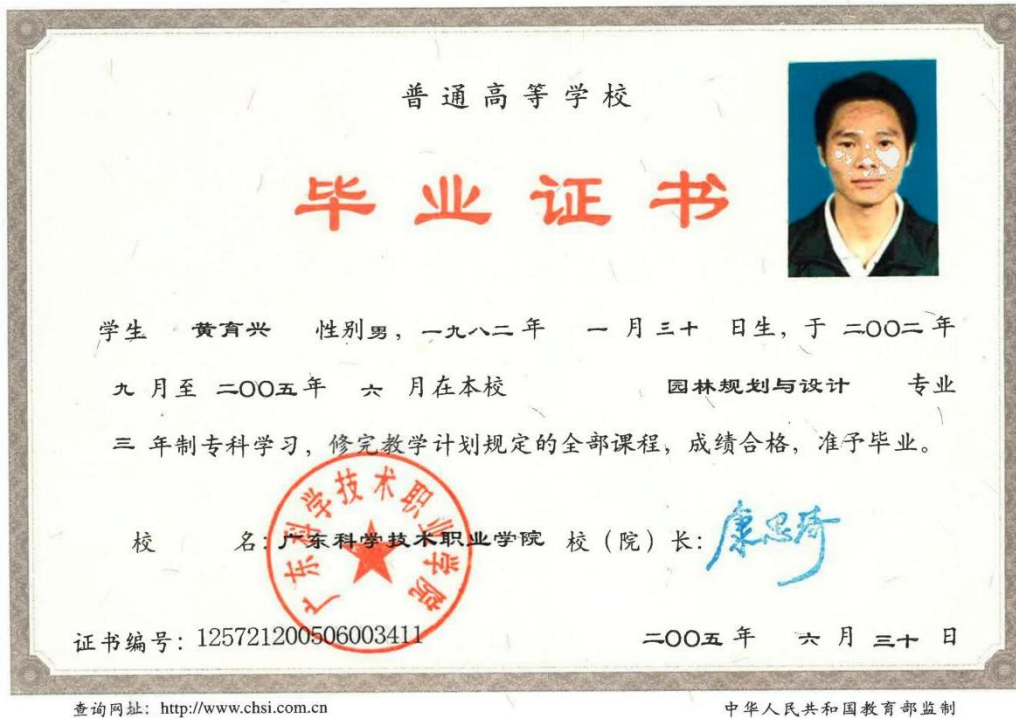 普通高等学校
毕业证书
学生 黄育兴 性别男，一九八二年 一月三十 日生，于 二〇〇二年
九 月至 二〇〇五年 六 月在本校 园林规划与设计 专业
三 年制专科学习，修完教学计划规定的全部课程，成绩合格，准予毕业。
校 名：广东科学技术职业学院 校（院）长：康思琦
广东科学技术职业学院
证书编号：125721200506003411 二〇〇五年 六 月 三十 日
查询网址：http://www.chsi.com.cn 中华人民共和国教育部监制